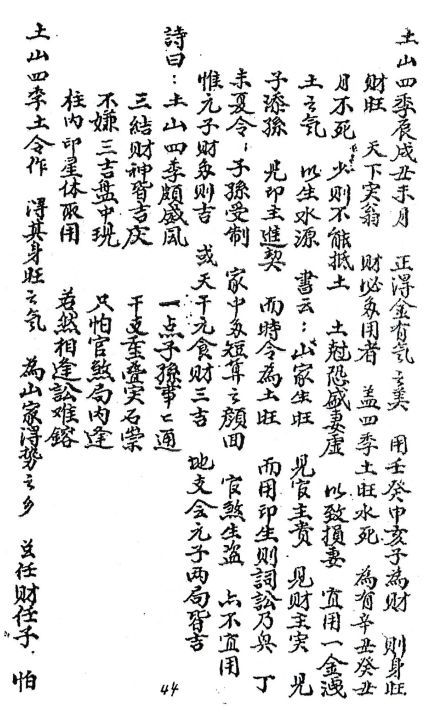 土山四季辰戌丑未月　正得金有氣之美　用壬癸申亥子為財　則身旺
財旺　天下实翁　財必多用者　盖四季土旺水死　為有辛丑癸丑
月不死　少則不能抵土　土尅恐盛妻虚　以致損妻　宜用一金洩
土之氣　以生水源　書云：山家生旺　見官主貴　見財主实　見
子添孫　見印主進契　而時令為土旺　而用印生則詞訟乃興　丁
未夏令；子孫受制　家中多短算之顔回　官煞生盗　点不宜用
惟元子財多則吉　或天干元食財三吉　地支会元子两局皆吉
詩曰：土山四季頗盛風　一点子孫事亡通
三結財神皆吉庆　干支重叠实石崇
不嫌三吉盘中現　只怕官煞局内逢
柱内印星休取用　若然相逢訟难鎔
土山四季土令作　得其身旺之気　為山家得势之乡　並任財任子．怕
44